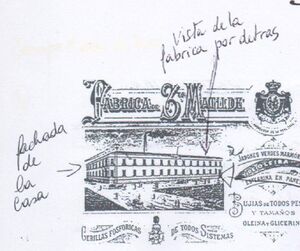 Vista de la
fabrica por detras
FÁBRICA DE Sta MATILDE
fachada
de
la
Casa
JABONES VERDES
BUJIAS DE TODOS
Y TAMAÑOS
OLEINA y GLICERIN
CERILLAS FOSFORICAS DE TODOS SISTEMAS